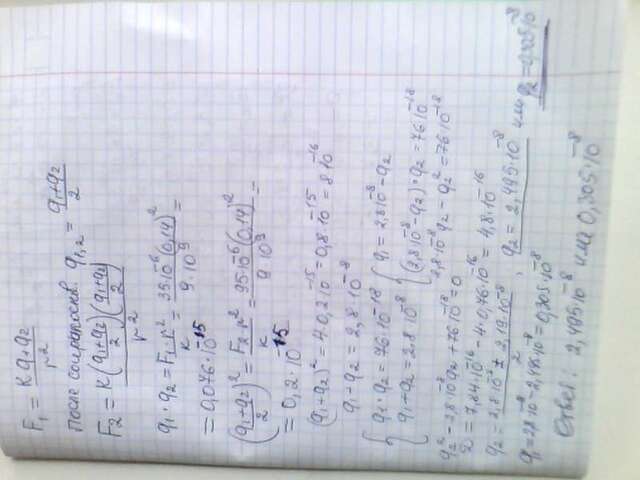 F₁ = K q₁ q₂ / r²
После соприкоснов. q₁,₂ = (q₁+q₂)/2
F₂ = K ((q₁+q₂)/2)((q₁+q₂)/2) / r²
q₁·q₂ = F₁·r²/K = 35·10⁻⁶·(0,14)²/9·10⁹ =
= 0,076·10⁻¹⁵
((q₁+q₂)/2)² = F₂·r²/K = 95·10⁻⁶·(0,14)²/9·10⁹ =
= 0,2·10⁻¹⁵
(q₁+q₂)² = 4·0,2·10⁻¹⁵ = 0,8·10⁻¹⁵ = 8·10⁻¹⁶
q₁·q₂ = 2,8·10⁻⁸
{ q₁·q₂ = 76·10⁻¹⁸ { q₁ = 2,8·10⁻⁸ - q₂
{ q₁+q₂ = 2,8·10⁻⁸ { (2,8·10⁻⁸ - q₂)·q₂ = 76·10⁻¹⁸
2,8·10⁻⁸q₂ - q₂² = 76·10⁻¹⁸
q₂² - 2,8·10⁻⁸q₂ + 76·10⁻¹⁸ = 0
D = 7,84·10⁻¹⁶ - 4·0,76·10⁻¹⁶ = 4,8·10⁻¹⁶
q₂ = (2,8·10⁻⁸ ± 2,19·10⁻⁸)/2 , q₂ = 2,495·10⁻⁸ или q₂ = 0,305·10⁻⁸
q₁ = 2,8·10⁻⁸ - 2,495·10⁻⁸ = 0,305·10⁻⁸
Ответ: 2,495·10⁻⁸ или 0,305·10⁻⁸